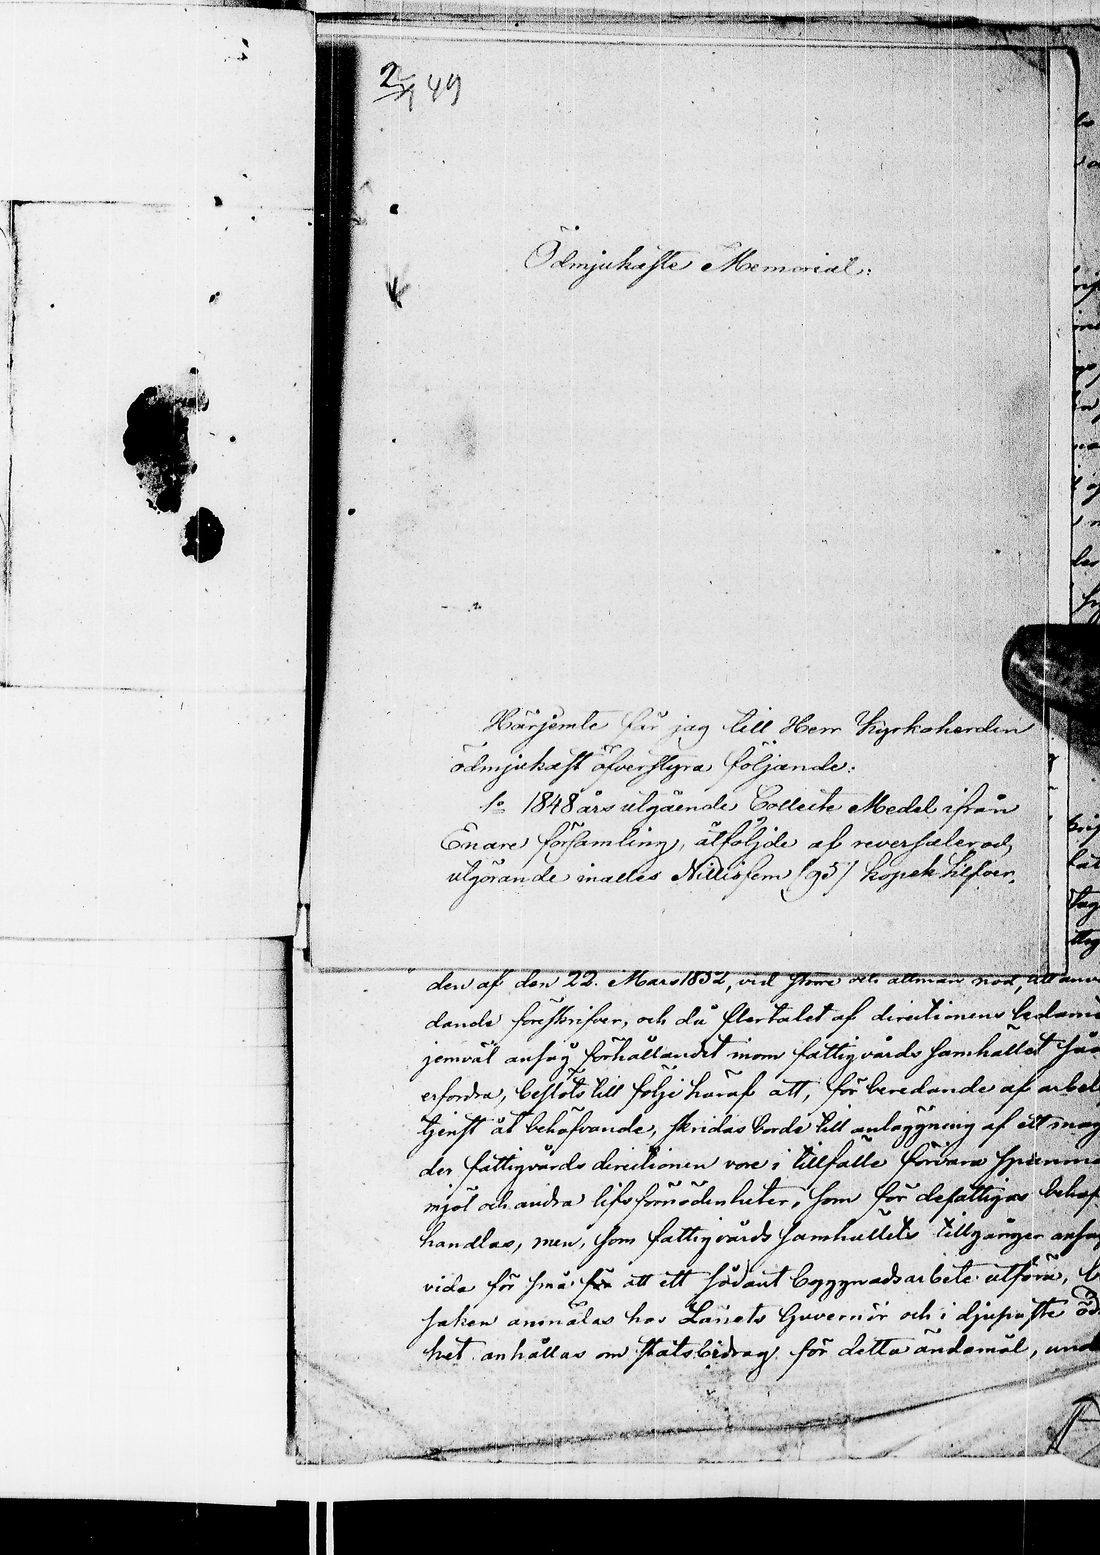 2/1 49
Ödmjukaste Memorial:
Härjemte får jag till Herr Kyrkoherden
ödmjukast öfverstyra följande:
1o 1848 års utgående Collecte Medel ifrån
Enare församling, åtföljde af reversaler och
utgörande inalles Nittiofem (95) kopek Silfver,
den af den 22. Mars 1852, vid större och allmän nöd,
dande föreskrifver, och då flertalet af directionens
jemväl ansåg förhållandet inom fattigvårds samhället
erfordra, beslöts till följe häraf att, för beredande af
tjenst åt behöfvande, skridas borde till anläggning af ett
der fattigvårds directionen vore i tillfälle förvara
mjöl och andra lifsförnödenheter, som för de fattigas
handlas, men, som fattigvårds samhällets tillgångar
vida för små för att ett sådant byggnadsarbete utföra,
saken anmälas hos Länets Guvernör och i djupaste
het anhållas om statsbidrag för detta ändamål,